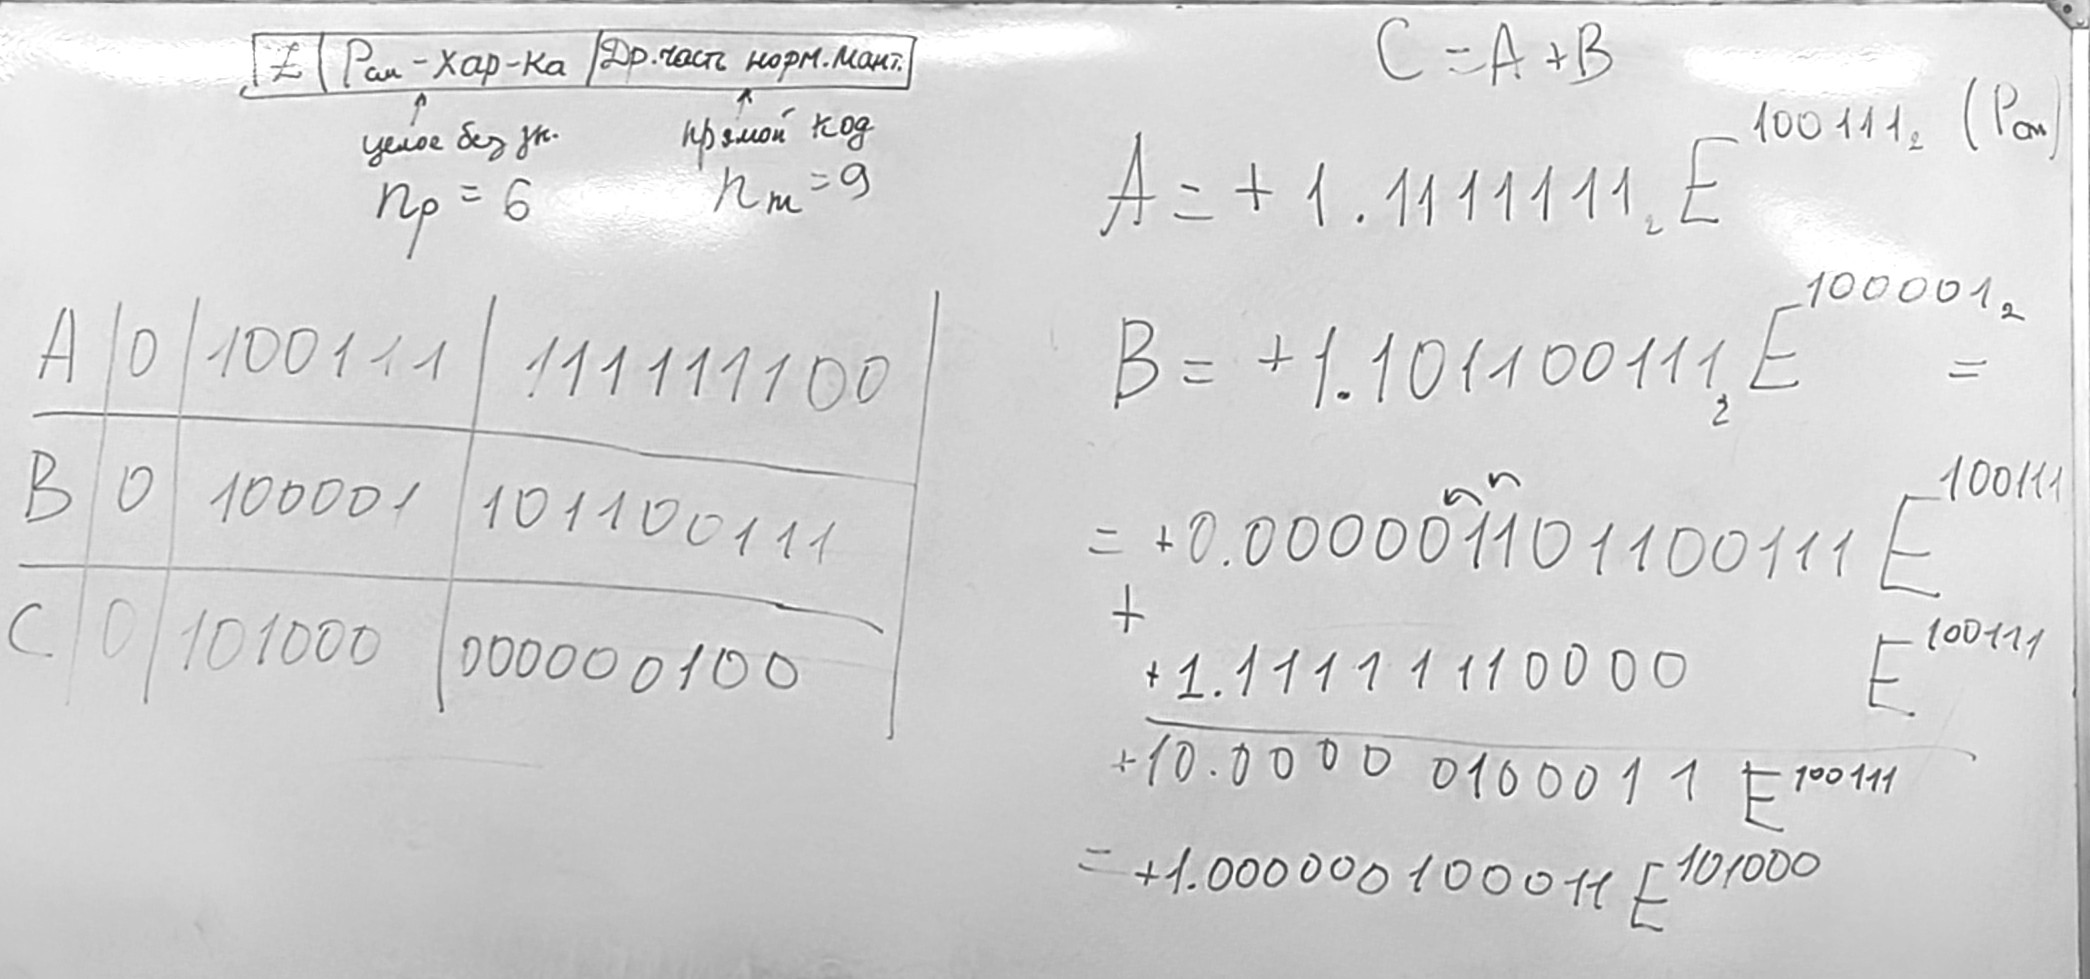 Z | Рсм - Хар-ка | Др. часть норм. мант.
целое без зн. прямой код
nр = 6 nm = 9
A | 0 | 100111 | 111111100
B | 0 | 100001 | 101100111
C | 0 | 101000 | 000000100
C = A + B
A = + 1.1111111₂ E^100111₂ (Рсм)
B = +1.101100111₂ E^100001₂ =
= +0.000001101100111 E^100111
+
+1.11111110000 E^100111
+10.00000100011 E^100111
= +1.000000100011 E^101000